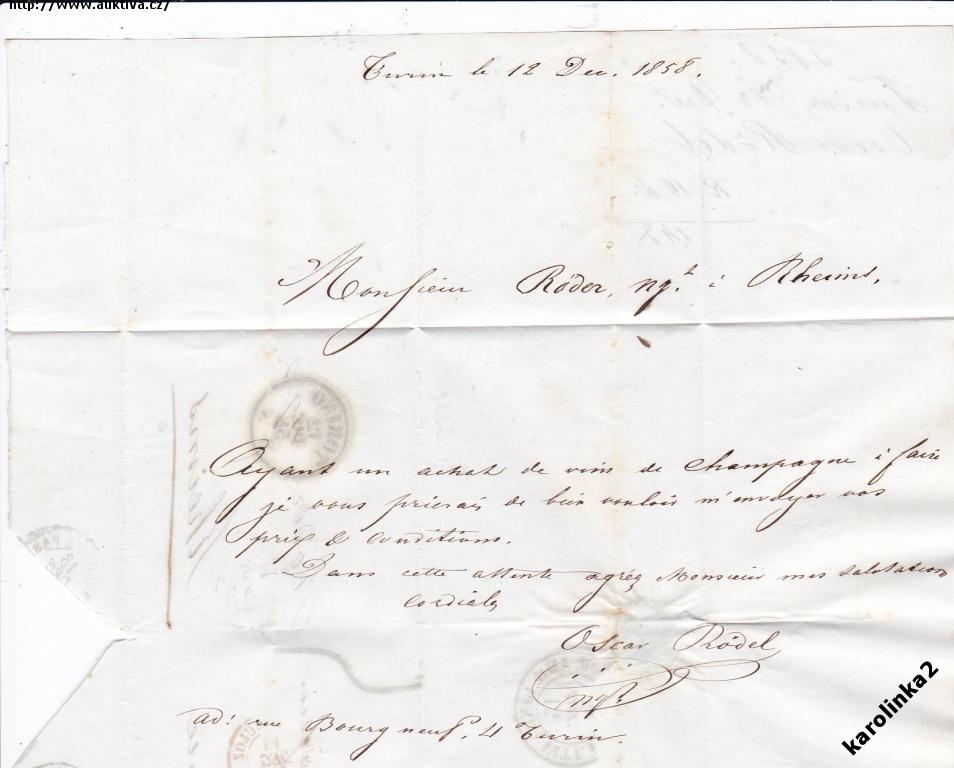 http://www.auktiva.cz/
Turin le 12 Dec. 1858.
Monsieur Röder, ngt. à Rheims,
Ayant un achat de vins de champagne à faire
je vous prierais de bien vouloir m'envoyer vos
prix & conditions.
Dans cette attente agréz Monsieur mes salutations
cordiales
Oscar Rödel
ngt.
ad: rue Bourg neuf, 4 Turin.
karolinka2